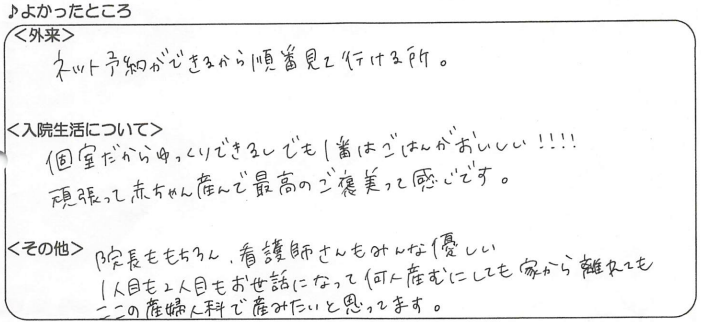 ♪よかったところ
<外来>
ネット予約ができるから順番見て行ける所。
<入院生活について>
個室だからゆっくりできるしでも1番はごはんがおいしい!!!!
頑張って赤ちゃん産んで最高のご褒美って感じです。
<その他>
院長ももちろん、看護師さんもみんな優しい
1人目も2人目もお世話になって何人産むにしても家から離れても
ここの産婦人科で産みたいと思ってます。